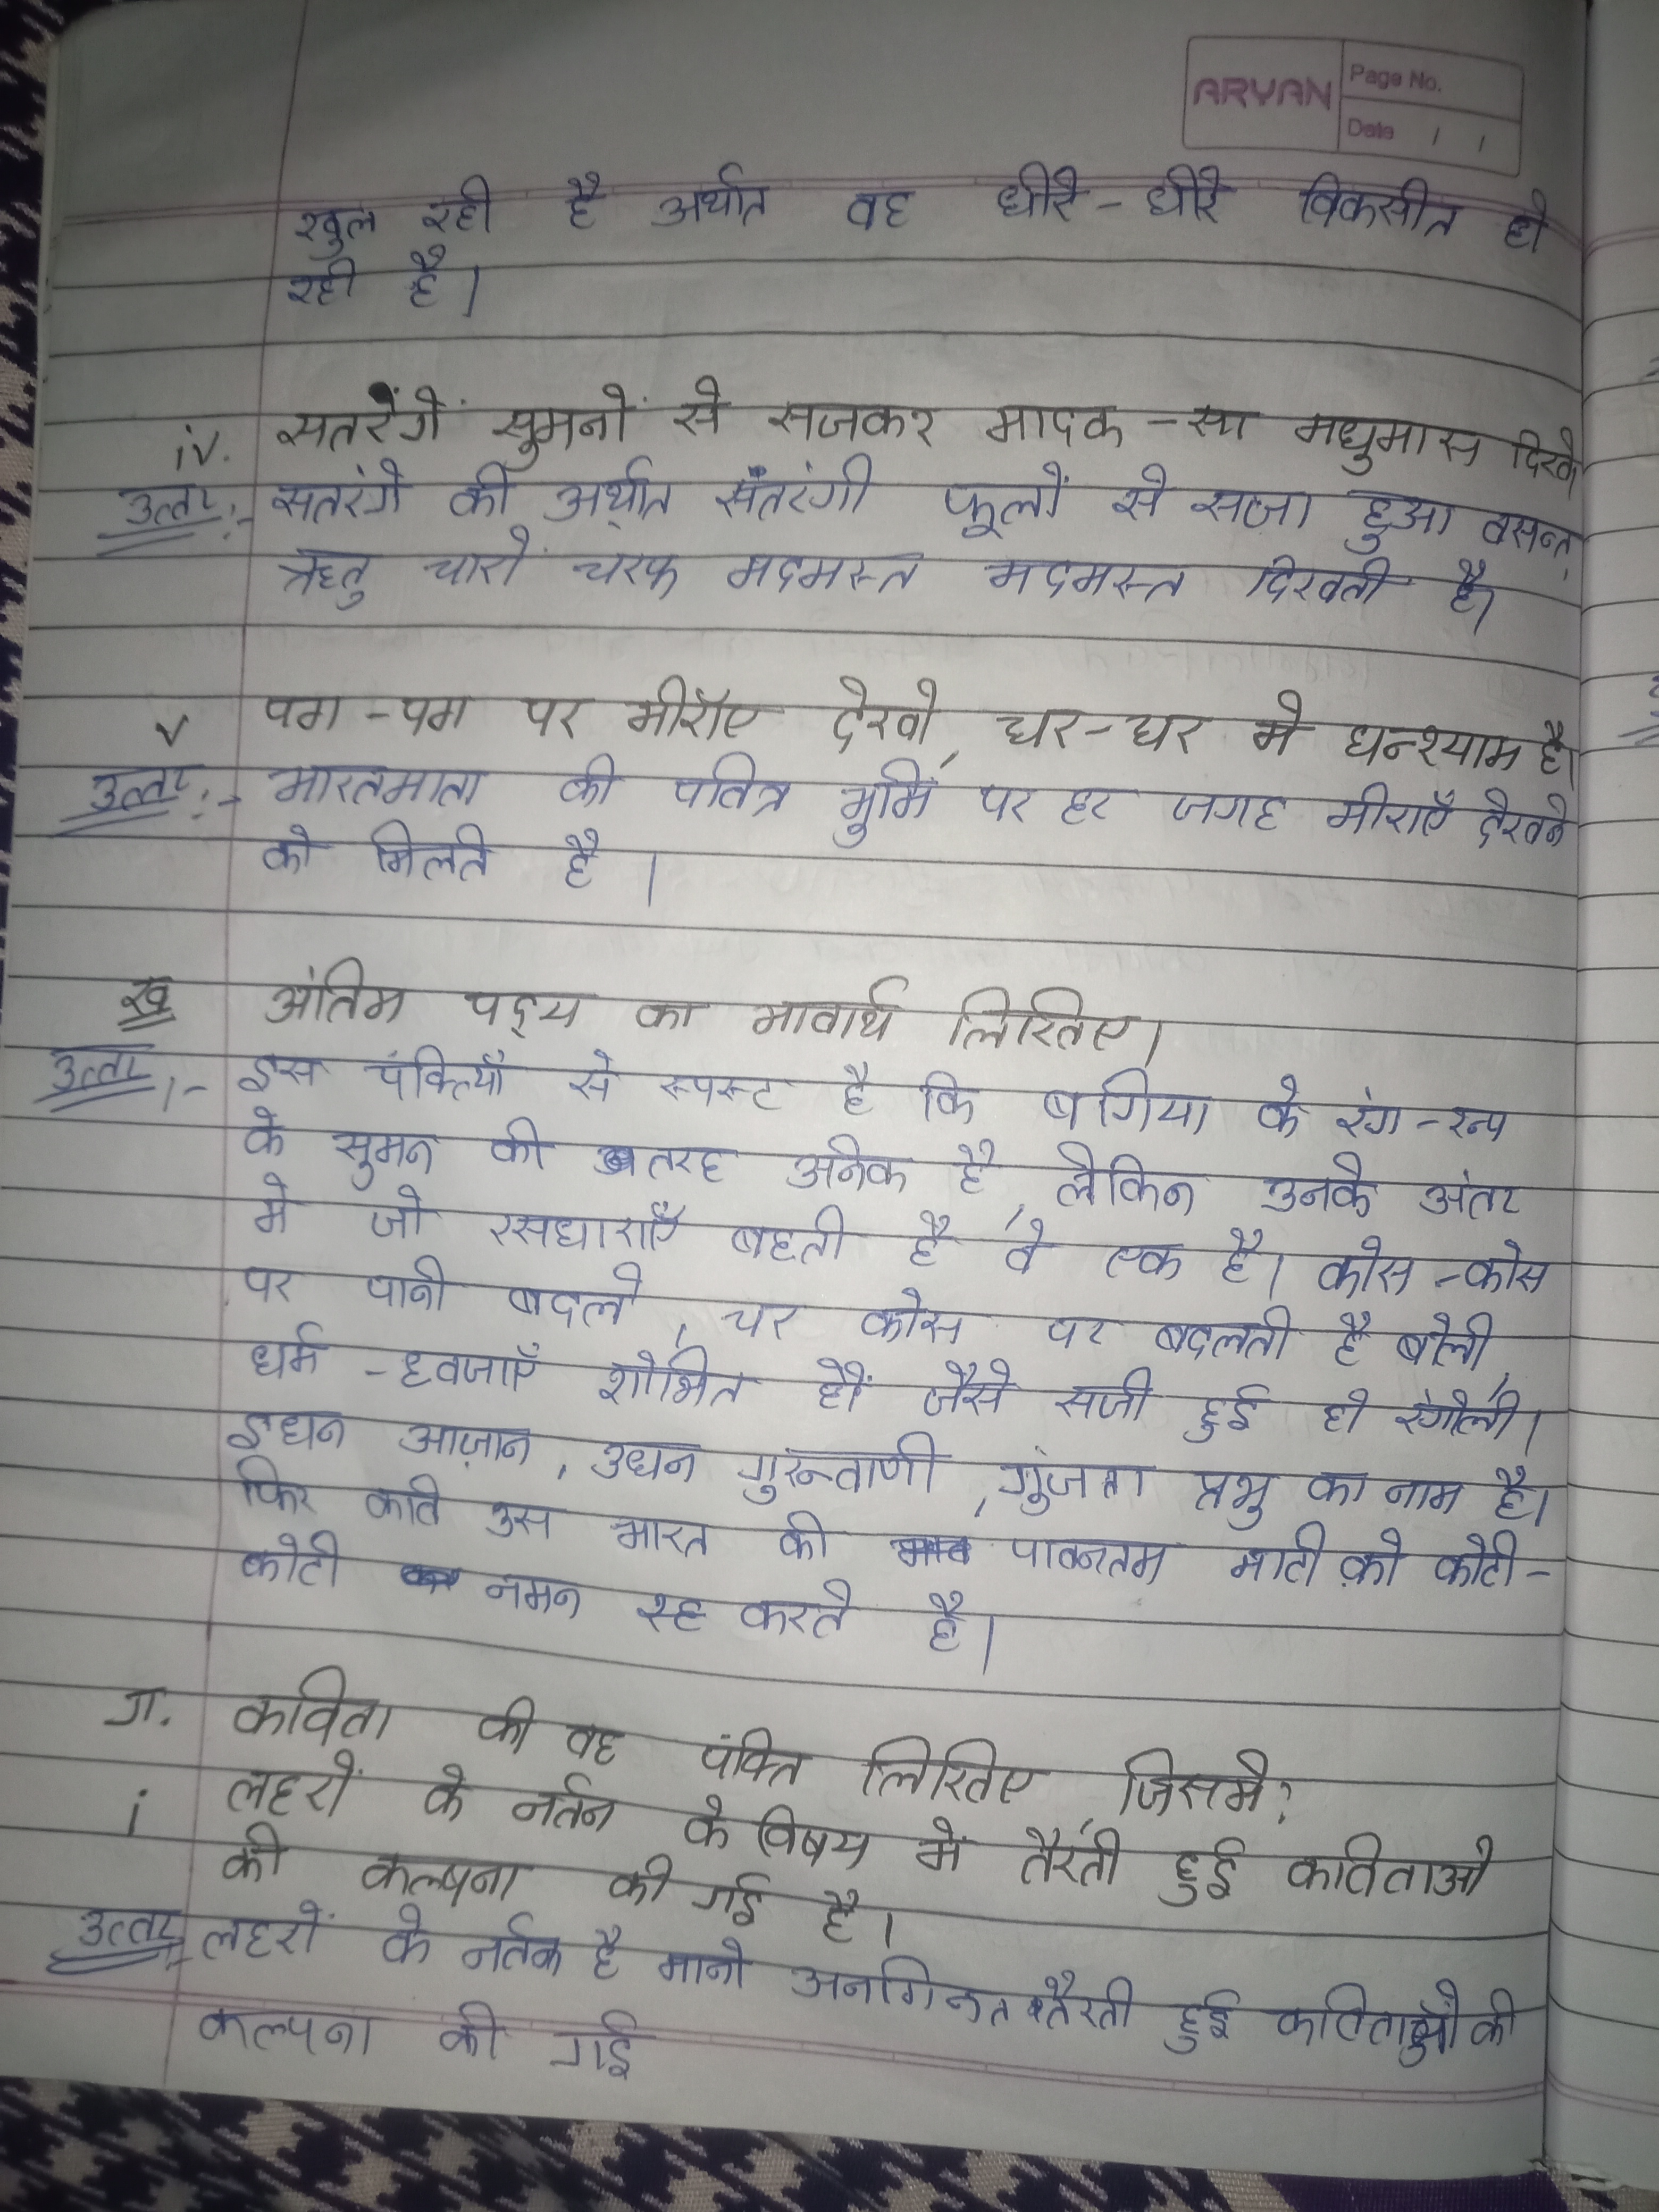 ARYAN
Page No.
Date / /
खुल रही है अर्थात वह धीरे-धीरे विकसीत हो
रही है।
iv. सतरेंगें सुमनों से सजकर मादक-सा मधुमास दिखे
उत्तर:- सतरंगे की अर्थात संतरंगी फूलों से सजा हुआ वसन्त
ऋतु चारों चरफ मदमस्त मदमस्त दिखती है।
v पग-पग पर मीराँए देखो, घर-घर मे घनश्याम है।
उत्तर:- भारतमाता की पवित्र भुमि पर हर जगह मीराएँ देखने
को मिलते है।
ख अंतिम पद्य का भावार्थ लिखिए।
उत्तर:- इस पंक्तियाँ से स्पस्ट है कि बगिया के रंग-रूप
के सुमन की तरह अनेक है, लेकिन उनके अंतर
मे जो रसधाराएँ बहती है, वे एक है। कोस-कोस
पर पानी बदले, चर कोस पर बदलती है बोली,
धर्म-ध्वजाएँ शोभित हों जैसे सजी हुई हो रंगोली।
इधन आज़ान, उधन गुरूवाणी, गुंजता प्रभु का नाम है।
फिर कवि उस भारत की पावनतम माटी को कोटी-
कोटी नमन रह करते है।
ग. कविता की वह पंक्ति लिखिए, जिसमे?
i लहरों के नर्तन के विषय में तैरती हुई कविताओ
की कल्पना की गई है।
उत्तर:- लहरों के नर्तक है मानो अनगिनत तैरती हुई कविताओं की
कल्पना की गई